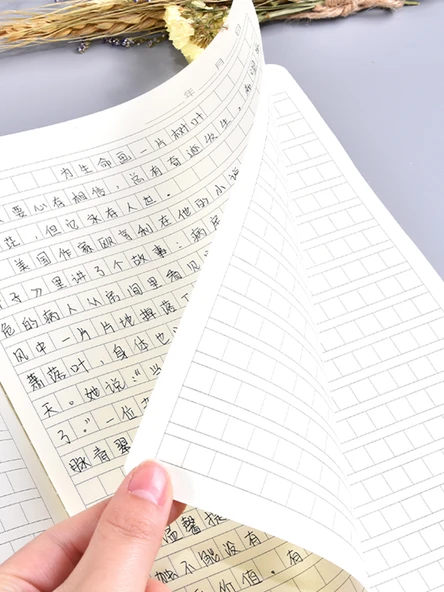 年 月 日
为生命画一片树叶
要心有相信，总有奇迹发生，
茫，但它永有人起。
美国作家欧亨利在他的小说
》里讲了个故事：病房
危的病人从房间里看见
风中一片片地掉落
萧落叶，身体也
天。她说："当
了。"一位
脉青翠
温馨
不能没有
价值。有